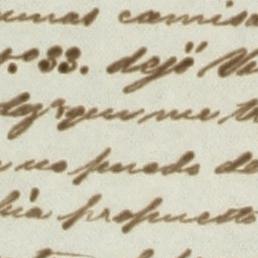 unas camisa
N.º 33. dejó Vu
que me t
no puedo de
bia propuesto